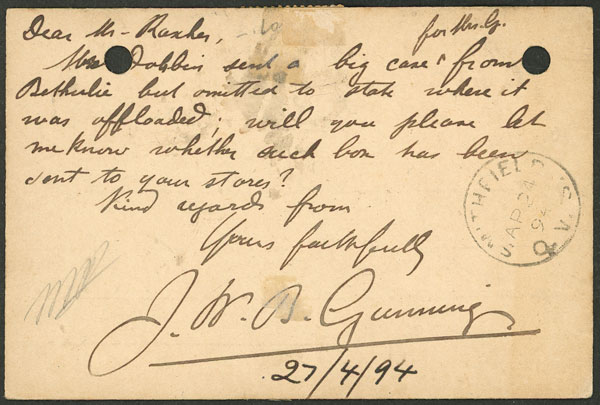 Dear Mr Raxher,
for Mrs. G.
Mrs Dobbin sent a big case from
Bethulie but omitted to state where it
was offloaded; will you please let
me know whether such box has been
sent to your stores?
Kind regards from
Yours faithfully
J. W. B. Gunning
27/4/94
SMITHFIELD O.V.S.
AP 24
94